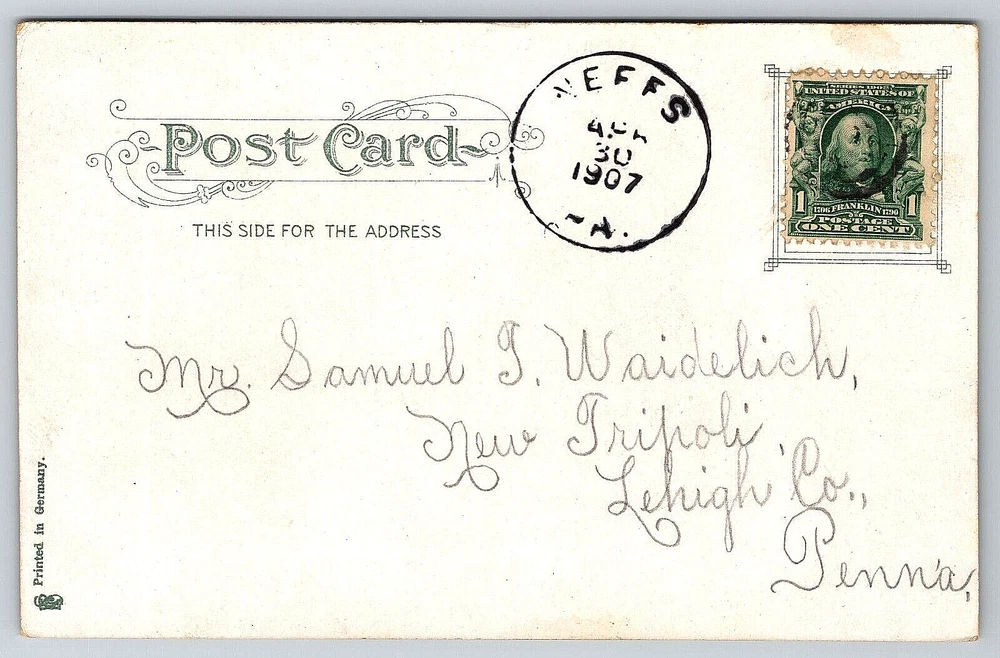 POST CARD
THIS SIDE FOR THE ADDRESS
NEFFS
APR
30
1907
A.
SERIES 1902
UNITED STATES OF
AMERICA
1 1
1706 FRANKLIN 1790
POSTAGE
ONE CENT
Mr. Samuel T. Waidelich,
New Tripoli,
Lehigh Co.,
Penn'a,
Printed in Germany.